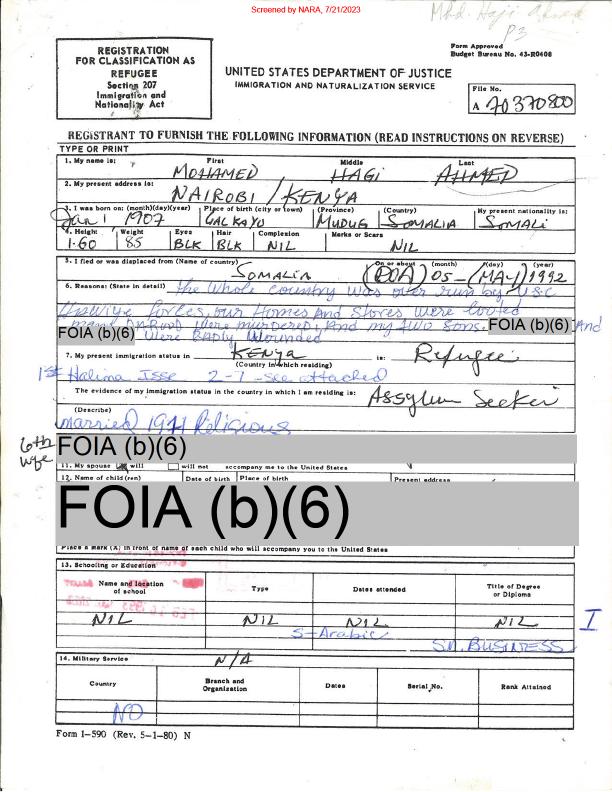 Screened by NARA, 7/21/2023
Mhd. Haji Ahmed
P3
REGISTRATION
FOR CLASSIFICATION AS
REFUGEE
Section 207
Immigration and
Nationality Act
Form Approved
Budget Bureau No. 43-R0408
UNITED STATES DEPARTMENT OF JUSTICE
IMMIGRATION AND NATURALIZATION SERVICE
File No.
A 70370800
REGISTRANT TO FURNISH THE FOLLOWING INFORMATION (READ INSTRUCTIONS ON REVERSE)
TYPE OR PRINT
1. My name is: First Middle Last
MOHAMED HAGI AHMED
2. My present address is:
NAIROBI / KENYA
3. I was born on: (month)(day)(year) Place of birth (city or town) (Province) (Country) My present nationality is:
Jan 1 1907 GALKAYO MUDUG SOMALIA SOMALI
4. Height Weight Eyes Hair Complexion Marks or Scars
1.60 85 BLK BLK NIL NIL
5. I fled or was displaced from (Name of country) On or about (month) (day) (year)
SOMALIA (DOA) 05-(MAY) 1992
6. Reasons: (State in detail) the whole country was over run by U.S.C
Hawiye forces, our Homes And Stores were looted
many DAROD were murdered, And my two sons. FOIA (b)(6) And
FOIA (b)(6) were badly wounded
7. My present immigration status in KENYA is: Refugee
(Country in which residing)
1st Halima Isse 2-7 -see attached
The evidence of my immigration status in the country in which I am residing is: Assylum Seeker
(Describe)
married 1971 Religious
6th wife FOIA (b)(6)
11. My spouse will will not accompany me to the United States
12. Name of child (ren) Date of birth Place of birth Present address
FOIA (b)(6)
Place a mark (X) in front of name of each child who will accompany you to the United States
13. Schooling or Education
Name and location of school Type Dates attended Title of Degree or Diploma
NIL NIL NIL NIL I
S-Arabic SM. BUSINESS
14. Military Service N/A
Country Branch and Organization Dates Serial No. Rank Attained
NO
Form I-590 (Rev. 5-1-80) N